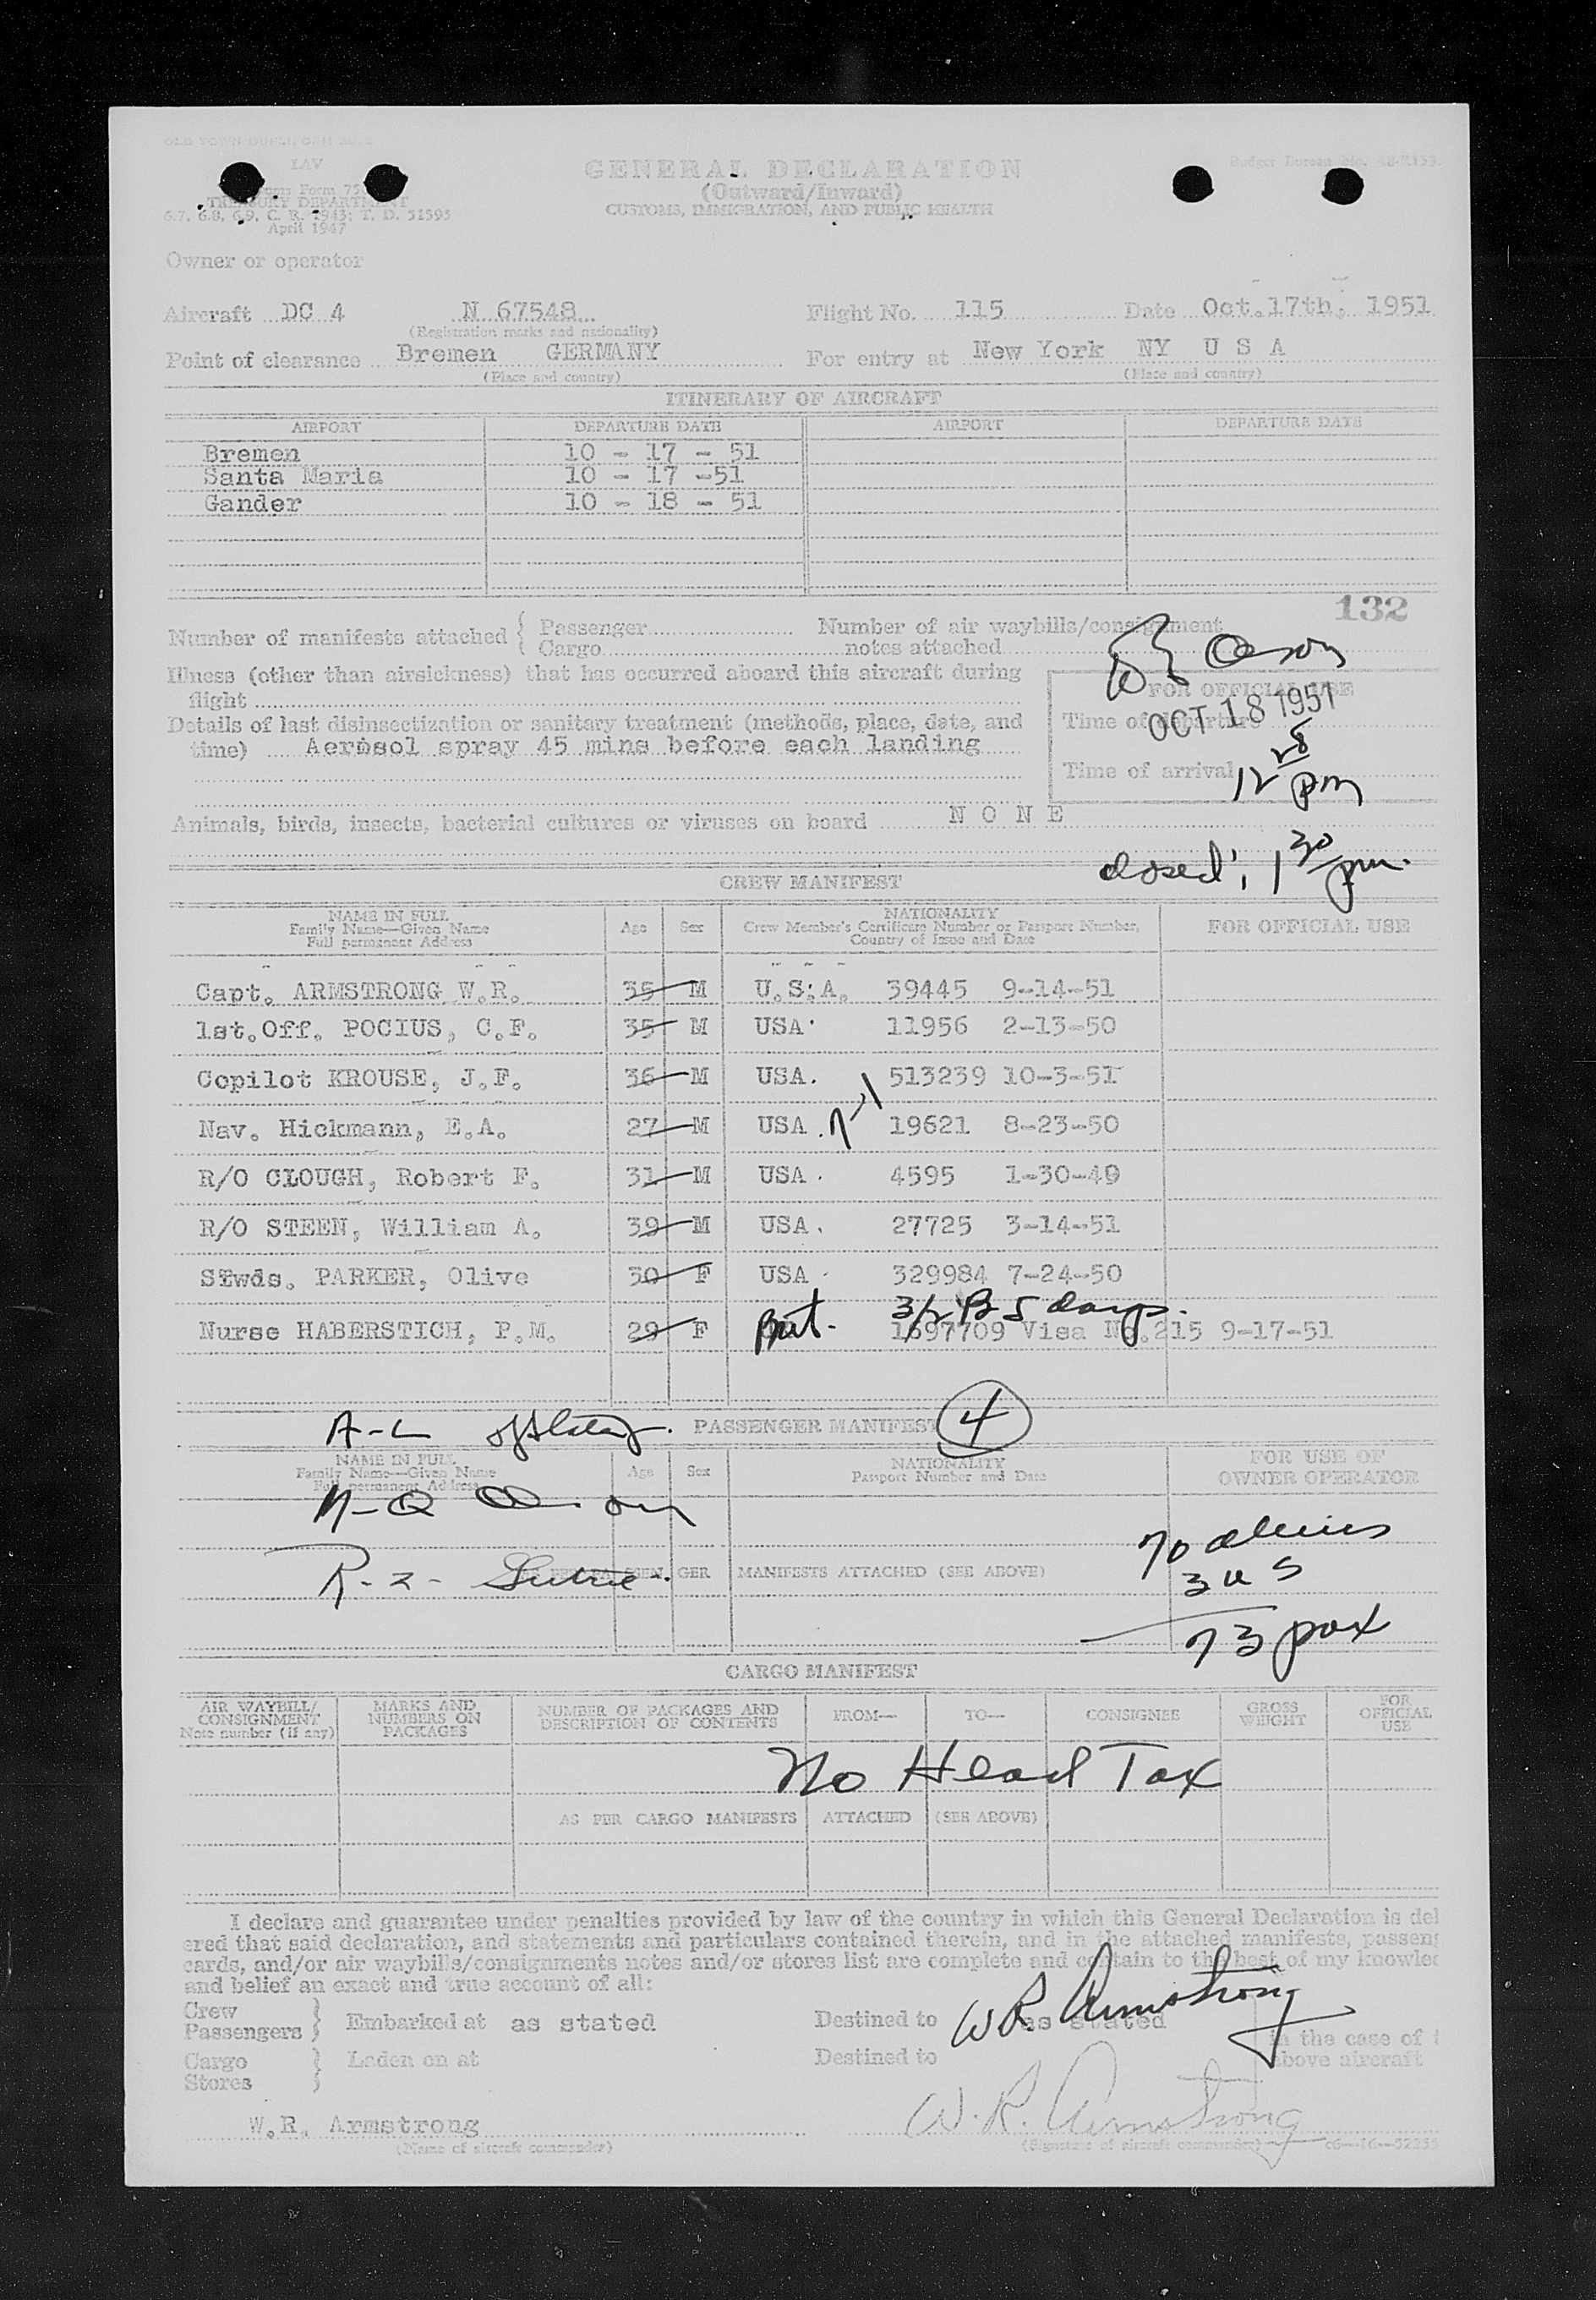 LAV
GENERAL DECLARATION
(Outward/Inward)
CUSTOMS, IMMIGRATION, AND PUBLIC HEALTH
TREASURY DEPARTMENT
6.7, 6.8, 6.9, C. R. 1943; T. D. 51595
April 1947
Owner or operator
Aircraft DC 4 N 67548 Flight No. 115 Date Oct.17th, 1951
(Registration marks and nationality)
Point of clearance Bremen GERMANY For entry at New York NY U S A
(Place and country) (Place and country)
ITINERARY OF AIRCRAFT
AIRPORT DEPARTURE DATE AIRPORT DEPARTURE DATE
Bremen 10 - 17 - 51
Santa Maria 10 - 17 -51
Gander 10 - 18 - 51
132
Number of manifests attached { Passenger Number of air waybills/consignment
Cargo notes attached
Illness (other than airsickness) that has occurred aboard this aircraft during
flight
FOR OFFICIAL USE
Details of last disinsectization or sanitary treatment (methods, place, date, and
Time of departure
OCT 18 1951
time) Aerosol spray 45 mins before each landing
Time of arrival 12 28 pm
Animals, birds, insects, bacterial cultures or viruses on board N O N E
closed: 1 30 pm.
CREW MANIFEST
NAME IN FULL
Family Name—Given Name
Full permanent Address
Age Sex
NATIONALITY
Crew Member's Certificate Number or Passport Number,
Country of Issue and Date
FOR OFFICIAL USE
Capt. ARMSTRONG W.R. 35 M U.S.A. 39445 9-14-51
1st.Off. POCIUS, C.F. 35 M USA 11956 2-13-50
Copilot KROUSE, J.F. 36 M USA. 513239 10-3-51
Nav. Hickmann, E.A. 27 M USA. 19621 8-23-50
R/O CLOUGH, Robert F. 31 M USA. 4595 1-30-49
R/O STEEN, William A. 39 M USA. 27725 3-14-51
Stwds. PARKER, Olive 30 F USA 329984 7-24-50
3/2 B 5 days.
Nurse HABERSTICH, P.M. 29 F Brit. 1697709 Visa No.215 9-17-51
A-L PASSENGER MANIFEST 4
NAME IN FULL
Family Name—Given Name
Full permanent Address
Age Sex
NATIONALITY
Passport Number and Date
FOR USE OF
OWNER OPERATOR
M-Q
70 aliens
R-Z GER MANIFESTS ATTACHED (SEE ABOVE)
3 U S
73 pax
CARGO MANIFEST
AIR WAYBILL/
CONSIGNMENT
Note number (if any)
MARKS AND
NUMBERS ON
PACKAGES
NUMBER OF PACKAGES AND
DESCRIPTION OF CONTENTS
FROM— TO— CONSIGNEE
GROSS
WEIGHT
FOR
OFFICIAL
USE
No Head Tax
AS PER CARGO MANIFESTS ATTACHED (SEE ABOVE)
I declare and guarantee under penalties provided by law of the country in which this General Declaration is del
ered that said declaration, and statements and particulars contained therein, and in the attached manifests, passeng
cards, and/or air waybills/consignments notes and/or stores list are complete and contain to the best of my knowled
and belief an exact and true account of all:
Crew
Passengers } Embarked at as stated Destined to as stated
W R Armstrong
in the case of t
above aircraft
Cargo
Stores } Laden on at Destined to
W.R. Armstrong W. R. Armstrong
(Name of aircraft commander) (Signature of aircraft commander)